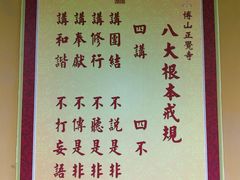 博山正覺寺
八大根本戒規
四講 四不
講團結 不說是非
講修行 不聽是非
講奉獻 不傳是非
講和諧 不打妄語